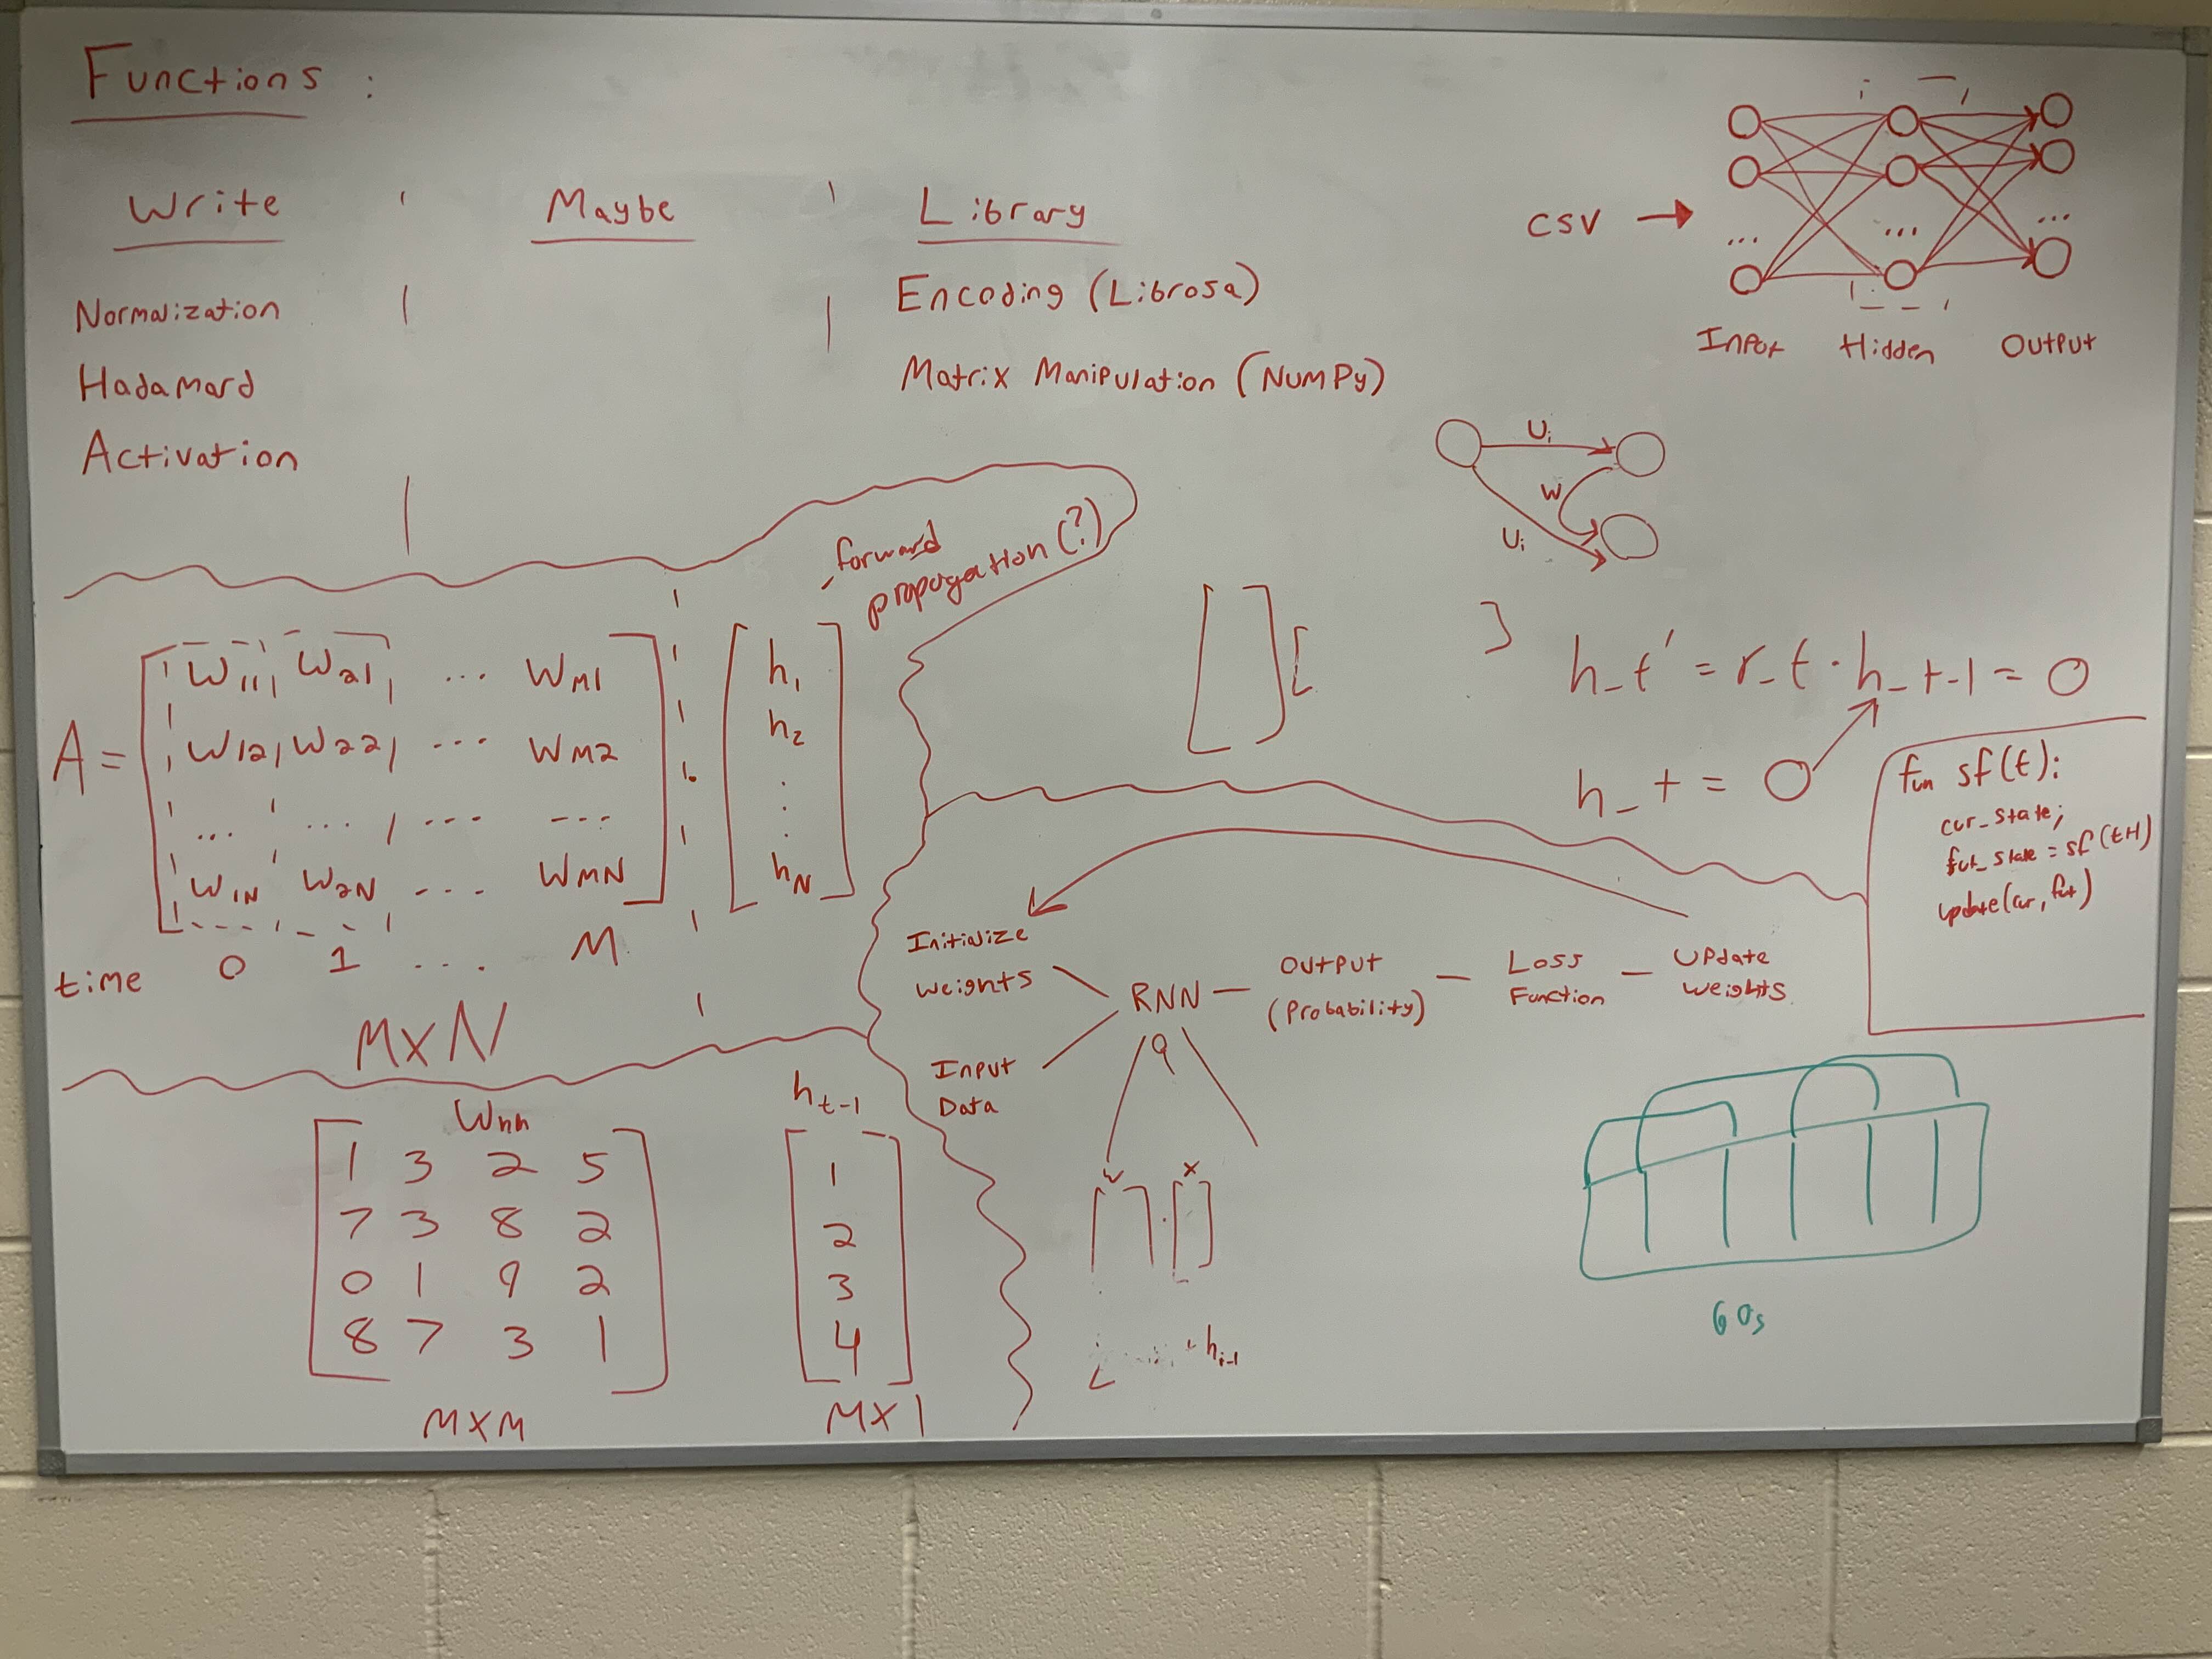 Functions :
Write
Maybe
Library
Normalization
Hadamard
Activation
Encoding (Librosa)
Matrix Manipulation (NumPy)
CSV →
...
...
...
Input Hidden Output
Ui
W
Ui
forward
propagation(?)
A =
W11 W21 ... WM1
W12 W22 ... WM2
... ... --- ---
W1N W2N ... WMN
time 0 1 ... M
MXN
h1
h2
.
.
.
hN
h_t' = r_t · h_t-1 = 0
h_t = 0
fun sf(t):
cur_state;
fut_state = sf(t+1)
update(cur, fut)
Initialize
weights
Input
Data
RNN
Output
(Probability)
Loss
Function
Update
weights
X
hi-1
Whh
1 3 2 5
7 3 8 2
0 1 9 2
8 7 3 1
MXM
ht-1
1
2
3
4
MX1
60s